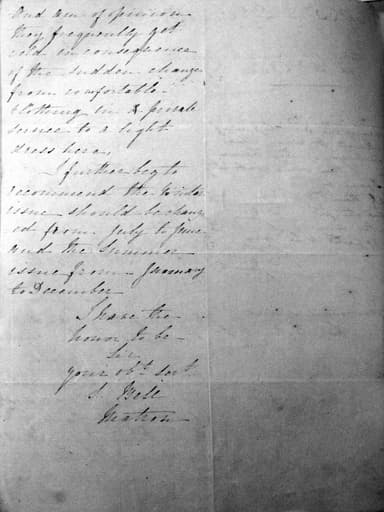 and am of opinion
they frequently get
cold in consequence
of the sudden change
from comfortable
clothing in private
service to a light
dress here.
I further beg to
recommend the Winter
issue should be chang
ed from July to June
and the Summer
issue from January
to December
I have the
honor to be
Sir
your obt. Servt.
S. Bell
Matron